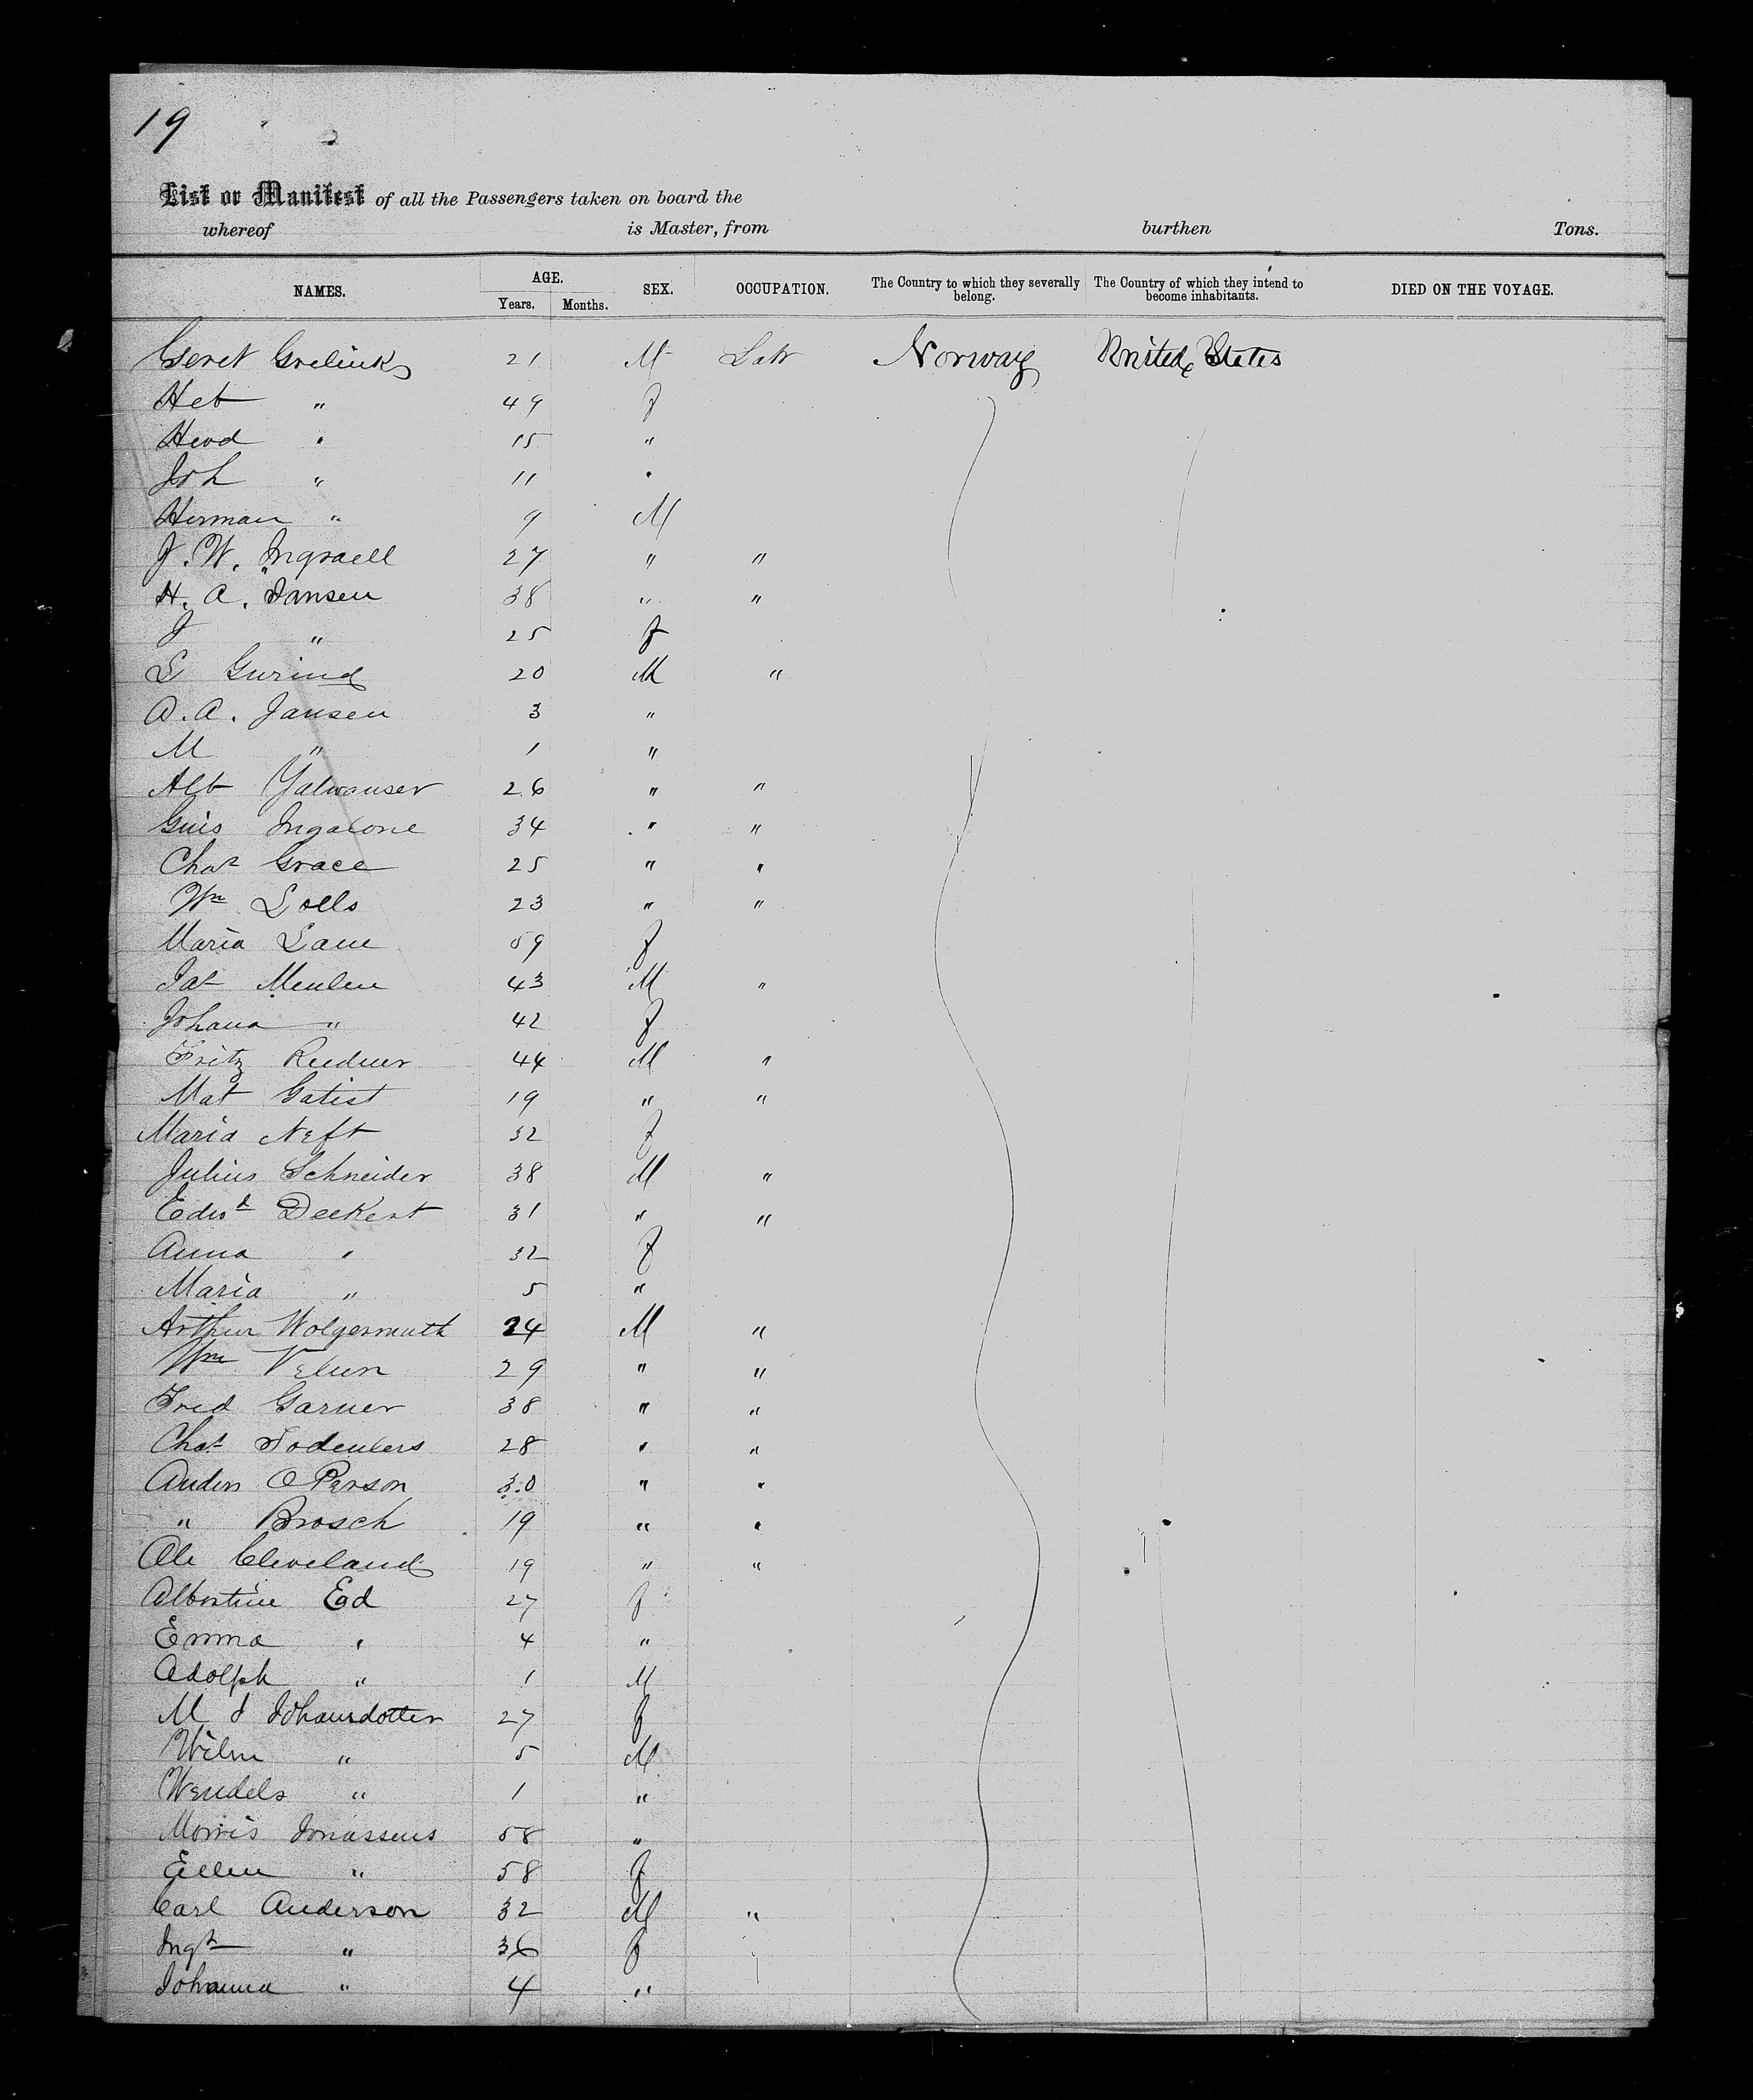 19
List or Manifest of all the Passengers taken on board the
whereof is Master, from burthen Tons.
NAMES. AGE. Years. Months. SEX. OCCUPATION. The Country to which they severally belong. The Country of which they intend to become inhabitants. DIED ON THE VOYAGE.
Geret Grelink 21 M Labr Norway United States
Heb " 49 f
" 15 "
Joh " 11 "
Herman " 9 M
J. W. Ingraell 27 " "
H. A. Jansen 38 " "
J " 25 f
L Gurind 20 M "
A. A. Jansen 3 "
M " 1 "
Alb 26 " "
Guis Ingalone 34 " "
Chas Grace 25 " "
Wm Lolls 23 " "
Maria Lane 59 f
Meulen 43 M "
Johana " 42 f
Fritz Rudner 44 M "
Mat Gatist 19 " "
Maria Neft 32 f
Julius Schneider 38 M "
Edwd Deekert 31 " "
Anna " 32 f
Maria " 5 "
Arthur Wolgermuth 24 M "
Wm Velun 29 " "
Fred Garner 38 " "
Chas 28 " "
Anders O Person 30 " "
" Brosch 19 " "
Ole Cleveland 19 " "
Albertine Ead 27 f
Emma " 4 "
Adolph " 1 M
M J Johansdotter 27 f
Wilm " 5 M
Wendels " 1 "
Morris Jonassens 58 "
Ellen " 58 f
Carl Anderson 32 M "
Ingr " 36 f
Johanna " 4 "